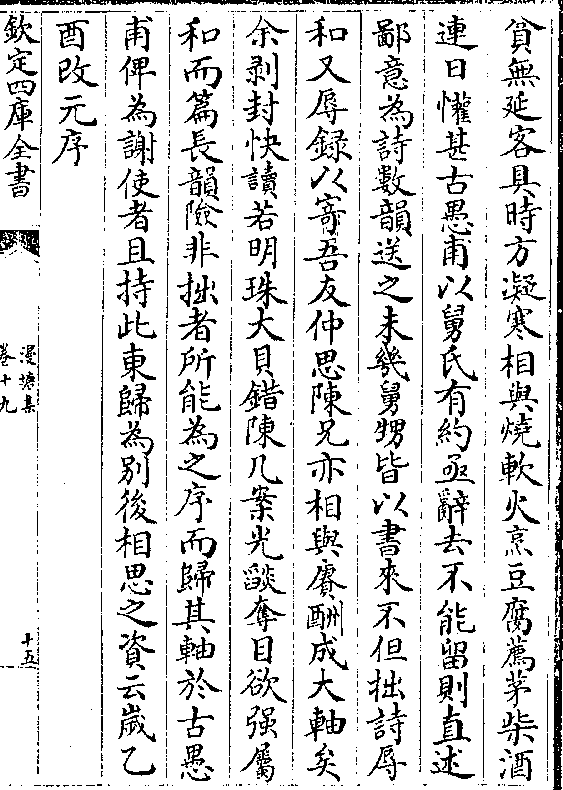 貧無延客具時方凝寒相與燒軟火烹豆腐薦茅柴酒
連日懽甚古愚甫以舅氏有約亟辭去不能留則直述
鄙意為詩數韻送之未幾舅甥皆以書來不但拙詩辱
和又辱録以寄吾友仲思陳兄亦相與賡酬成大軸矣
余剥封快讀若明珠大貝錯陳几案光燄奪目欲强屬
和而篇長韻險非拙者所能為之序而歸其軸於古愚
甫俾為謝使者且持此東歸為别後相思之資云歲乙
酉改元序
欽定四庫全書
漫塘集
卷十九
十五